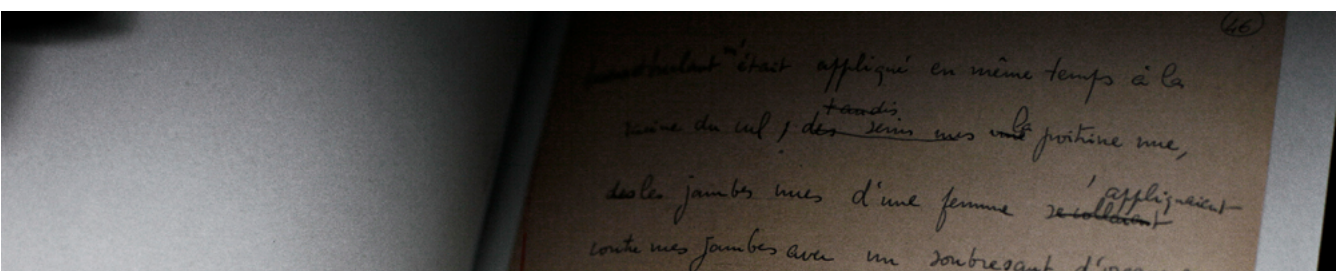 46
m'était appliqué en même temps à la
racine du cul, tandis des seins nus la poitrine nue,
des les jambes nues d'une femme s'appliquaient se collaient
contre mes jambes avec un soubresaut